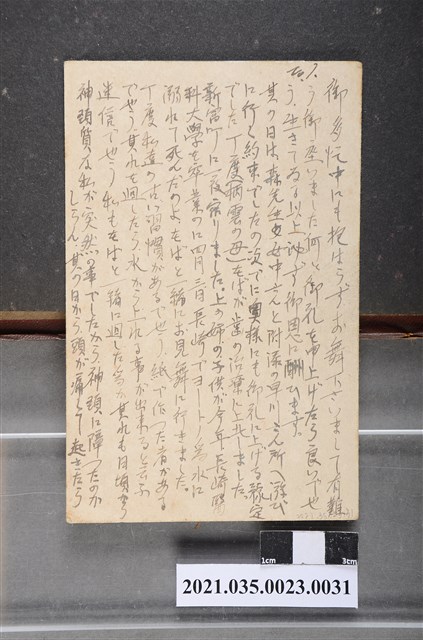 御多忙中にも拘はらずお舞下さいまして有難
う御座いました何と御礼を申上げたら良いでせ
う、生きてゐる以上必ず御恩に酬ひます
其の日は森先生や女中さんと附添の早川さん所へ遊び
に行く約束でしたの次でに奥様にも御礼に上げる予定
でした丁度病室の母をばが歯の治療に上北しました
新富町に一夜宿りました。上の姉の子供が今年長崎医
科大学を卒業のに四月三日長崎でヨートの為水に
溺れて死んだのよをばと一緒にお見舞に行きました。
丁度私達の古い習慣があるでせう紙で作った者がある
でせう其れを廻したら水から上れる事が出来るといふ
迷信でせう私もをばと一緒に廻した為か其れも日頃から
神頭質な私が突然の事でしたから神頭に障ったのか
しらん其の日から頭が痛くて起きたら
1cm 3cm
2021.035.0023.0031